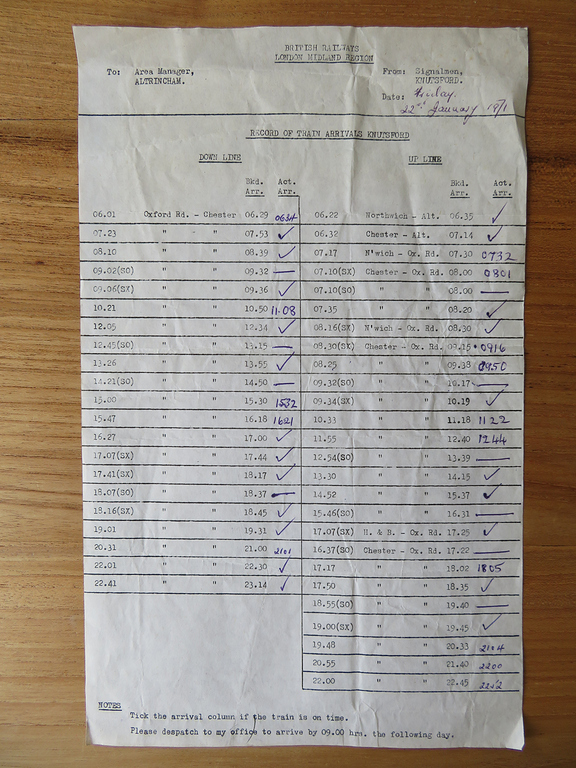 BRITISH RAILWAYS
LONDON MIDLAND REGION
To: Area Manager, From: Signalmen,
ALTRINCHAM. KNUTSFORD.
Date: Friday.
22nd January 1971
RECORD OF TRAIN ARRIVALS KNUTSFORD
DOWN LINE UP LINE
Bkd. Act. Bkd. Act.
Arr. Arr. Arr. Arr.
06.01 Oxford Rd. - Chester 06.29 0634 06.22 Northwich - Alt. 06.35 ✓
07.23 " - " 07.53 ✓ 06.32 Chester - Alt. 07.14 ✓
08.10 " " 08.39 ✓ 07.17 N'wich - Ox. Rd. 07.30 0732
09.02(SO) " " 09.32 — 07.10(SX) Chester - Ox. Rd. 08.00 0801
09.06(SX) " " 09.36 ✓ 07.10(SO) " " 08.00 —
10.21 " " 10.50 11.08 07.35 " " 08.20 ✓
12.05 " " 12.34 ✓ 08.16(SX) N'wich - Ox. Rd. 08.30 ✓
12.45(SO) " " 13.15 — 08.30(SX) Chester - Ox. Rd. 09.15 0916
13.26 " " 13.55 ✓ 08.25 " " 09.38 0950
14.21(SO) " " 14.50 — 09.32(SO) " " 10.17 —
15.00 " " 15.30 1532 09.34(SX) " " 10.19 ✓
15.47 " " 16.18 1621 10.33 " " 11.18 1122
16.27 " " 17.00 ✓ 11.55 " " 12.40 1244
17.07(SX) " " 17.44 ✓ 12.54(SO) " " 13.39 —
17.41(SX) " " 18.17 ✓ 13.30 " " 14.15 ✓
18.07(SO) " " 18.37 — 14.52 " " 15.37 ✓
18.16(SX) " " 18.45 ✓ 15.46(SO) " " 16.31 —
19.01 " " 19.31 ✓ 17.07(SX) H. & B. - Ox. Rd. 17.25 ✓
20.31 " " 21.00 2101 16.37(SO) Chester - Ox. Rd. 17.22 —
22.01 " " 22.30 ✓ 17.17 " " 18.02 1805
22.41 " " 23.14 ✓ 17.50 " " 18.35 ✓
18.55(SO) " " 19.40 —
19.00(SX) " " 19.45 ✓
19.48 " " 20.33
20.55 " " 21.40 2200
22.00 " " 22.45 2252
NOTES
Tick the arrival column if the train is on time.
Please despatch to my office to arrive by 09.00 hrs. the following day.